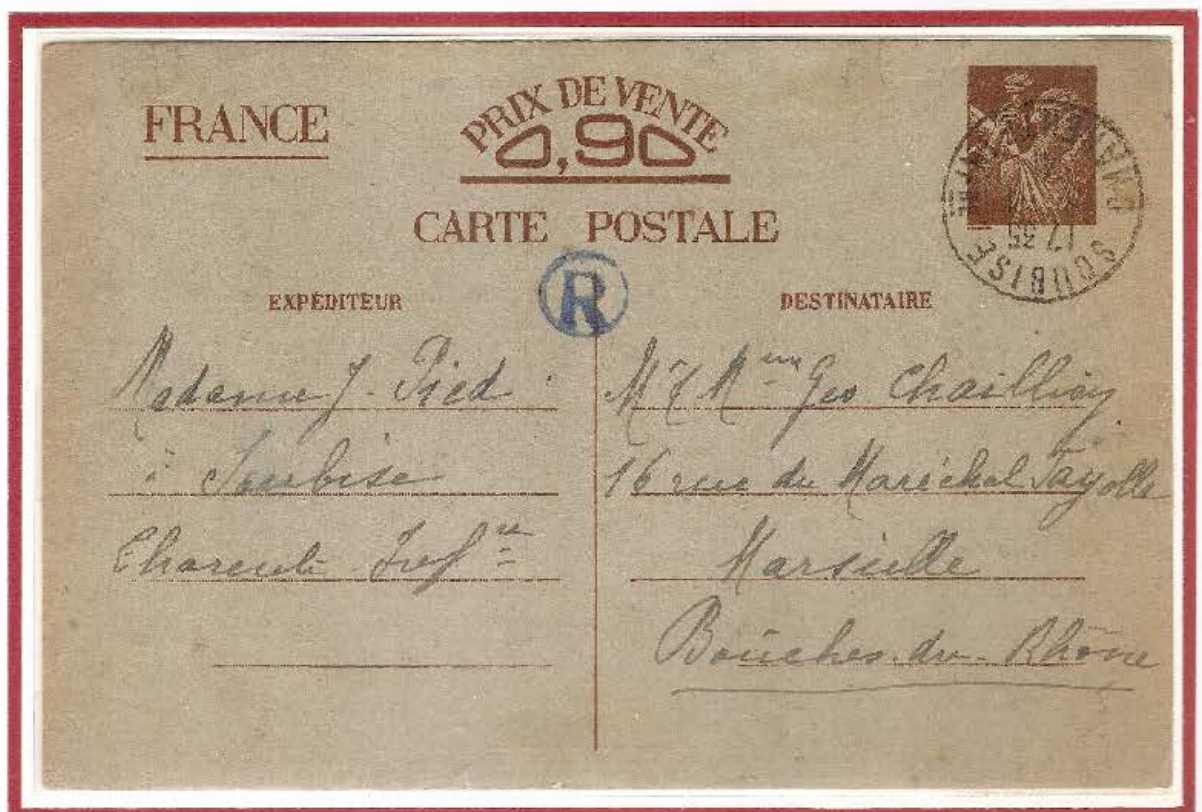 FRANCE
PRIX DE VENTE
0,90
CARTE POSTALE
R
EXPÉDITEUR
Madame J. Pied
à Soubise
Charente Infre
DESTINATAIRE
Mr & Mme Geo
16 rue du Maréchal Fayolle
Marseille
Bouches-du-Rhône
SOUBISE
17 35